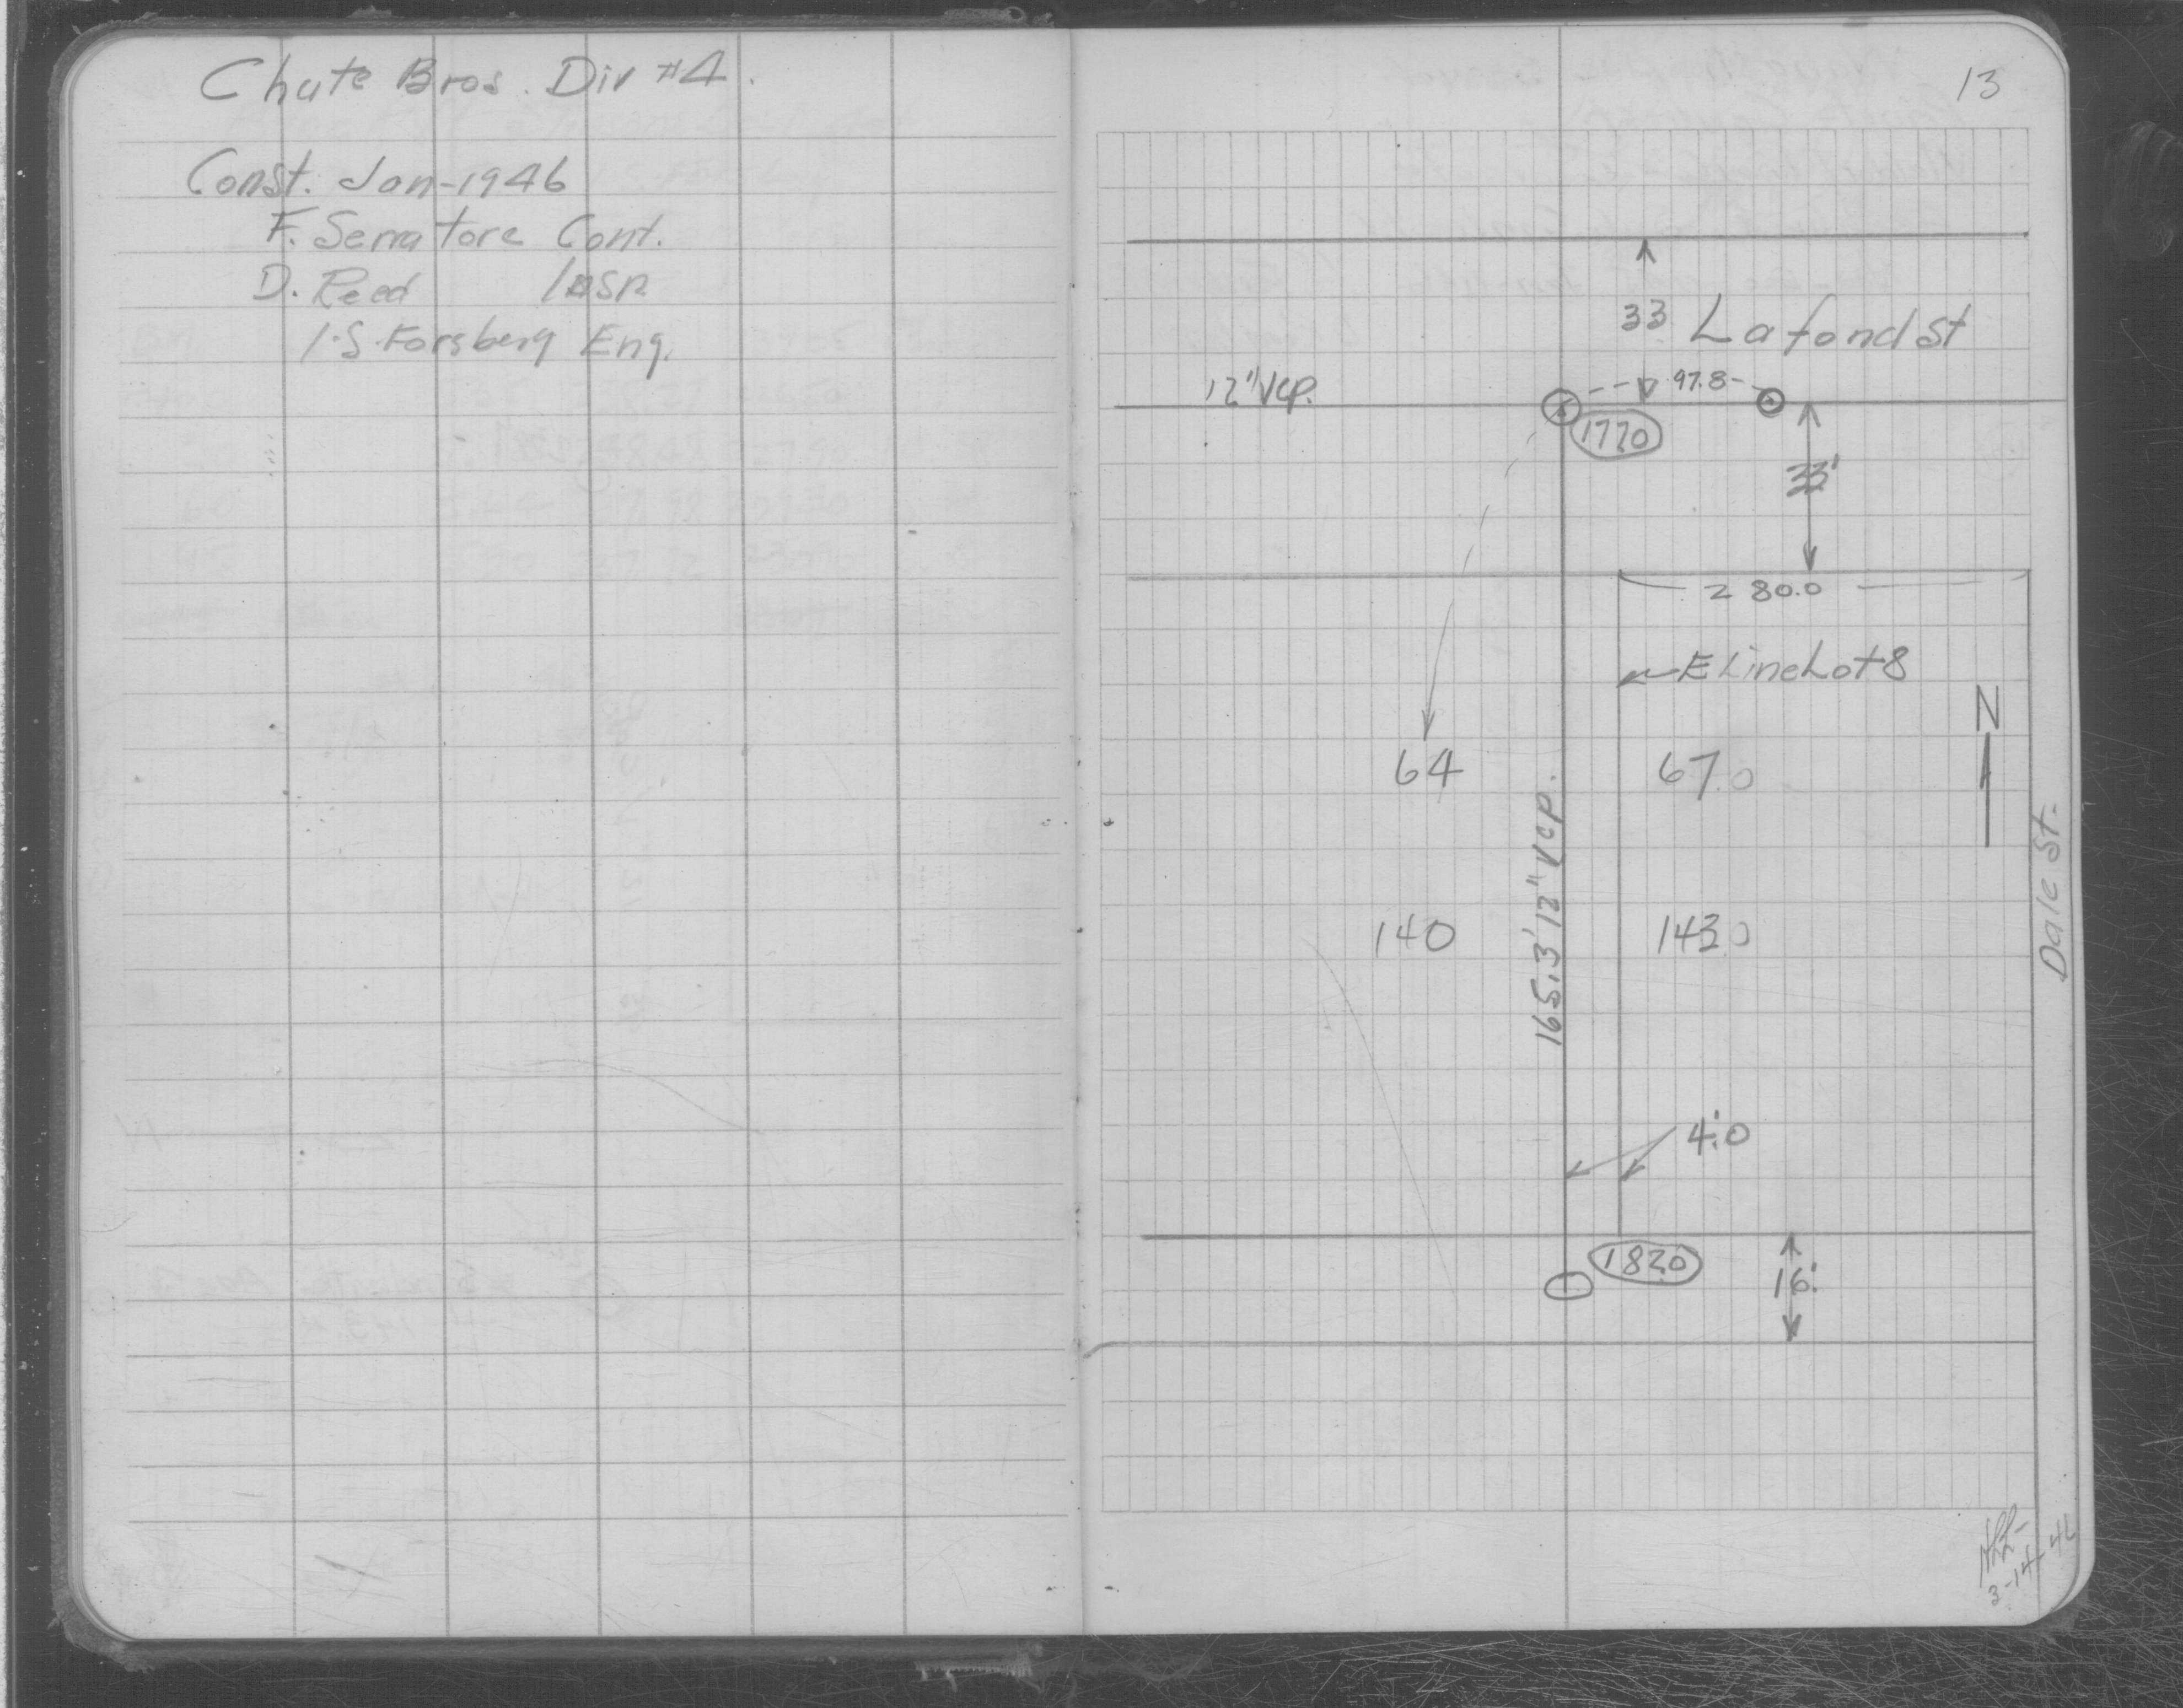 Chute Bros. Div #4.
Const. Jan-1946
F. Serratore Cont.
D. Reed Insp.
I.S. Forsberg Eng.
13
33 Lafond St
12" VCP.
97.8
177.0
33'
280.0
E Line Lot 8
N
64
67.0
165.3' 12" VCP.
Dale St.
140
143.0
4.'0
182.0
16.'
3-14-46